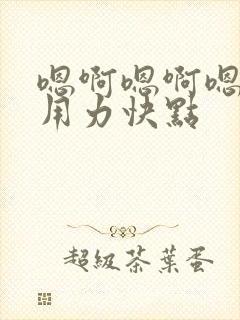 嗯啊嗯啊嗯
用力快點
超級茶葉蛋